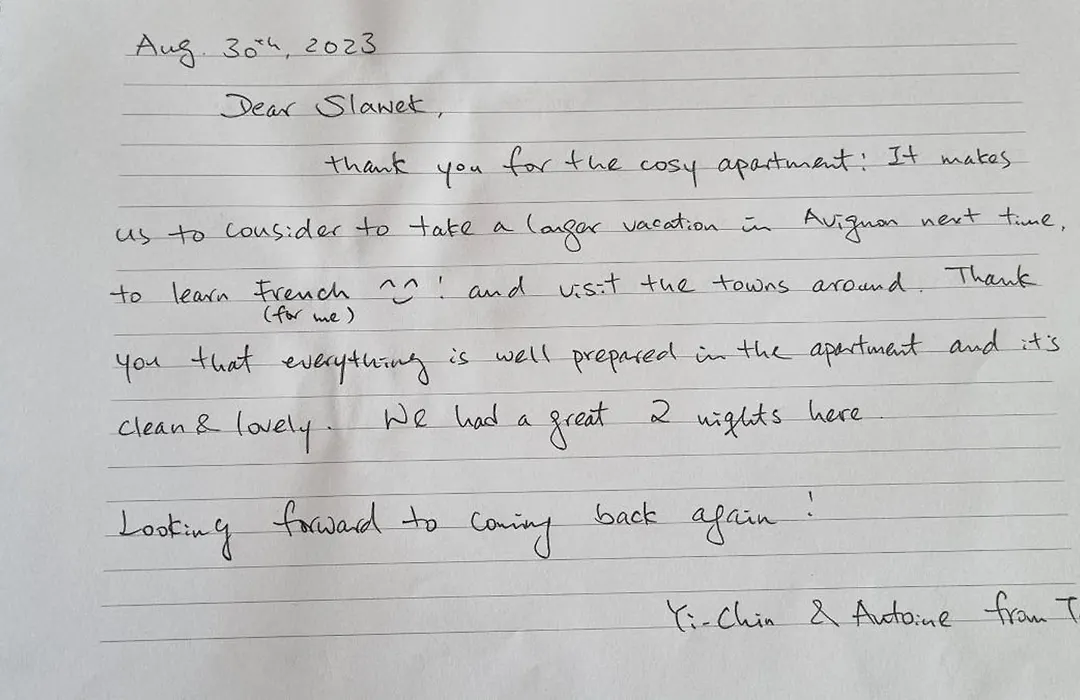 Aug. 30th, 2023
Dear Slawek,
thank you for the cosy apartment! It makes
us to consider to take a longer vacation in Avignon next time,
to learn French ^^ ! and visit the towns around. Thank
(for me)
you that everything is well prepared in the apartment and it's
clean & lovely. We had a great 2 nights here.
Looking forward to coming back again!
Yi-Chin & Antoine from T